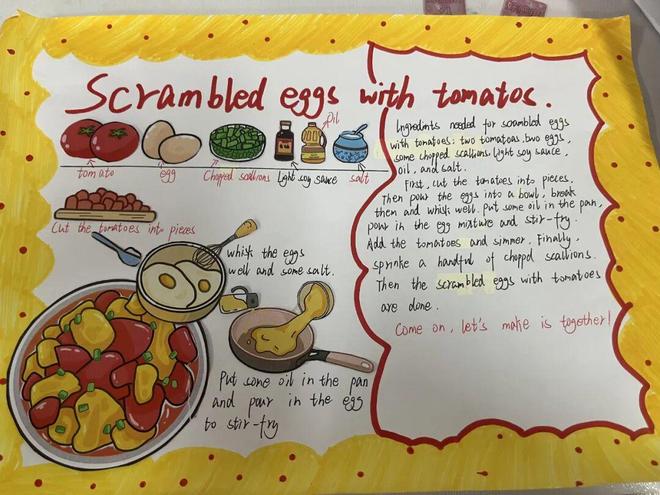 Scrambled eggs with tomatos.
Oil
tomato
egg
Chopped scallions
Light soy sauce
salt
Cut the tomatoes into pieces
whisk the eggs
well and some salt.
Put some oil in the pan
and pour in the egg
to stir-fry
Ingredients needed for scrambled eggs
with tomatoes: two tomatoes, two eggs,
some chopped scallions, light soy sauce,
oil, and salt.
First, cut the tomatoes into pieces.
Then pour the eggs into a bowl, break
them and whisk well. Put some oil in the pan,
pour in the egg mixture and stir-fry.
Add the tomatoes and simmer. Finally,
sprinke a handful of chopped scallions.
Then the scrambled eggs with tomatoes
are done.
Come on, let's make is together!